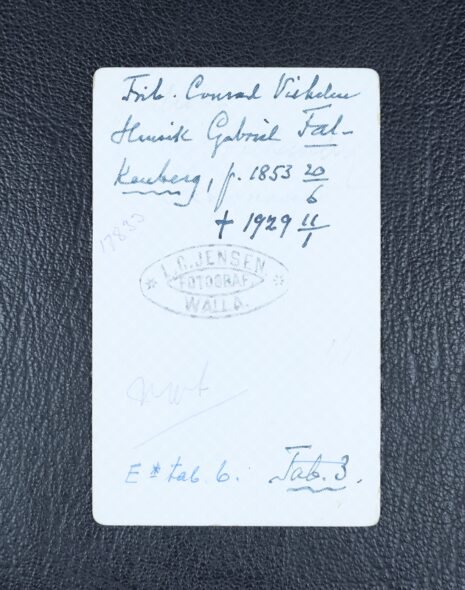 Frih. Conrad Vilhelm
Henrik Gabriel Fal-
kenberg, f. 1853 20/6
† 1929 11/1
17830
* L.C. JENSEN *
FOTOGRAF
WALLA.
E * tab. 6. Tab. 3.